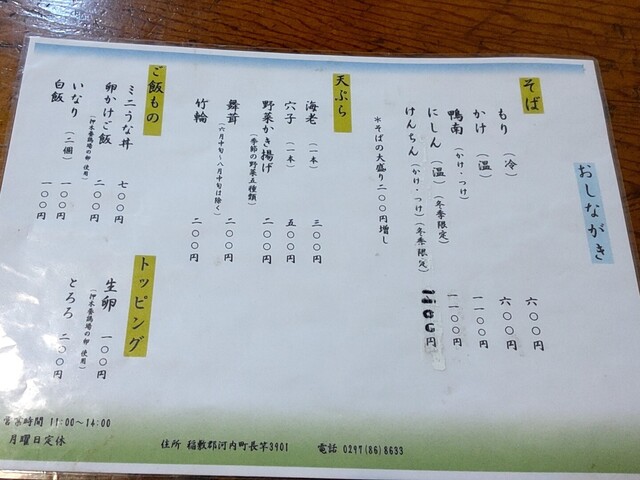 おしながき
そば
もり（冷） 六〇〇円
かけ（温） 六〇〇円
鴨南（かけ・つけ） 一一〇〇円
にしん（温）（冬季限定） 一一〇〇円
けんちん（かけ・つけ）（冬季限定） 1100円
＊そばの大盛り二〇〇円増し
天ぷら
海老（一本） 三〇〇円
穴子（一本） 五〇〇円
野菜かき揚げ 二〇〇円
（季節の野菜五種類）
舞茸 二〇〇円
（六月中旬～八月中旬は除く）
竹輪 二〇〇円
ご飯もの
ミニうな丼 七〇〇円
卵かけご飯 二〇〇円
（押木養鶏場の卵 使用）
いなり（二個） 一〇〇円
白飯 一〇〇円
トッピング
生卵 一〇〇円
（押木養鶏場の卵 使用）
とろろ 二〇〇円
営業時間 11:00～14:00
月曜日定休
住所 稲敷郡河内町長竿3901 電話 0297(86)8633